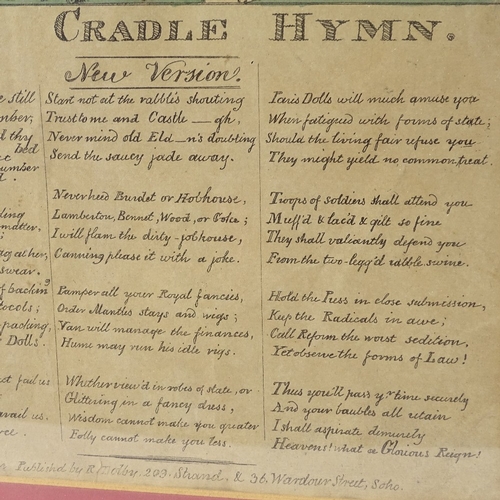 CRADLE HYMN.
New Version.
e still
mber,
d thy
bed
umber
Start not at the rabble's shouting
Trust to me and Castle__gh,
Never mind old Eld_n's doubting
Send the saucy jade away.
Never heed Burdet or Hobhouse,
Lamberton, Bennet, Wood, or Coke;
I will flam the dirty jobhouse,
Canning please it with a joke.
Pamper all your Royal fancies,
Order Mantles stays and wigs;
Van will manage the finances,
Hume may run his idle rigs.
Whether view'd in robes of state, or
Glittering in a fancy dress,
Wisdom cannot make you greater
Folly cannot make you less.
Paris Dolls will much amuse you
When fatigued with forms of state;
Should the living fair refuse you
They might yield no common treat.
Troops of soldiers shall attend you
Muff'd & lac'd & gilt so fine
They shall valiantly defend you
From the two-legg'd rabble swine.
Hold the Press in close submission,
Keep the Radicals in awe;
Call Reform the worst sedition,
Yet observe the forms of Law!
Thus you'll pass yr. time securely
And your baubles all retain
I shall aspirate demurely
Heavens! what a Glorious Reign!
Published by 209. Strand, & 36, Wardour Street, Soho.